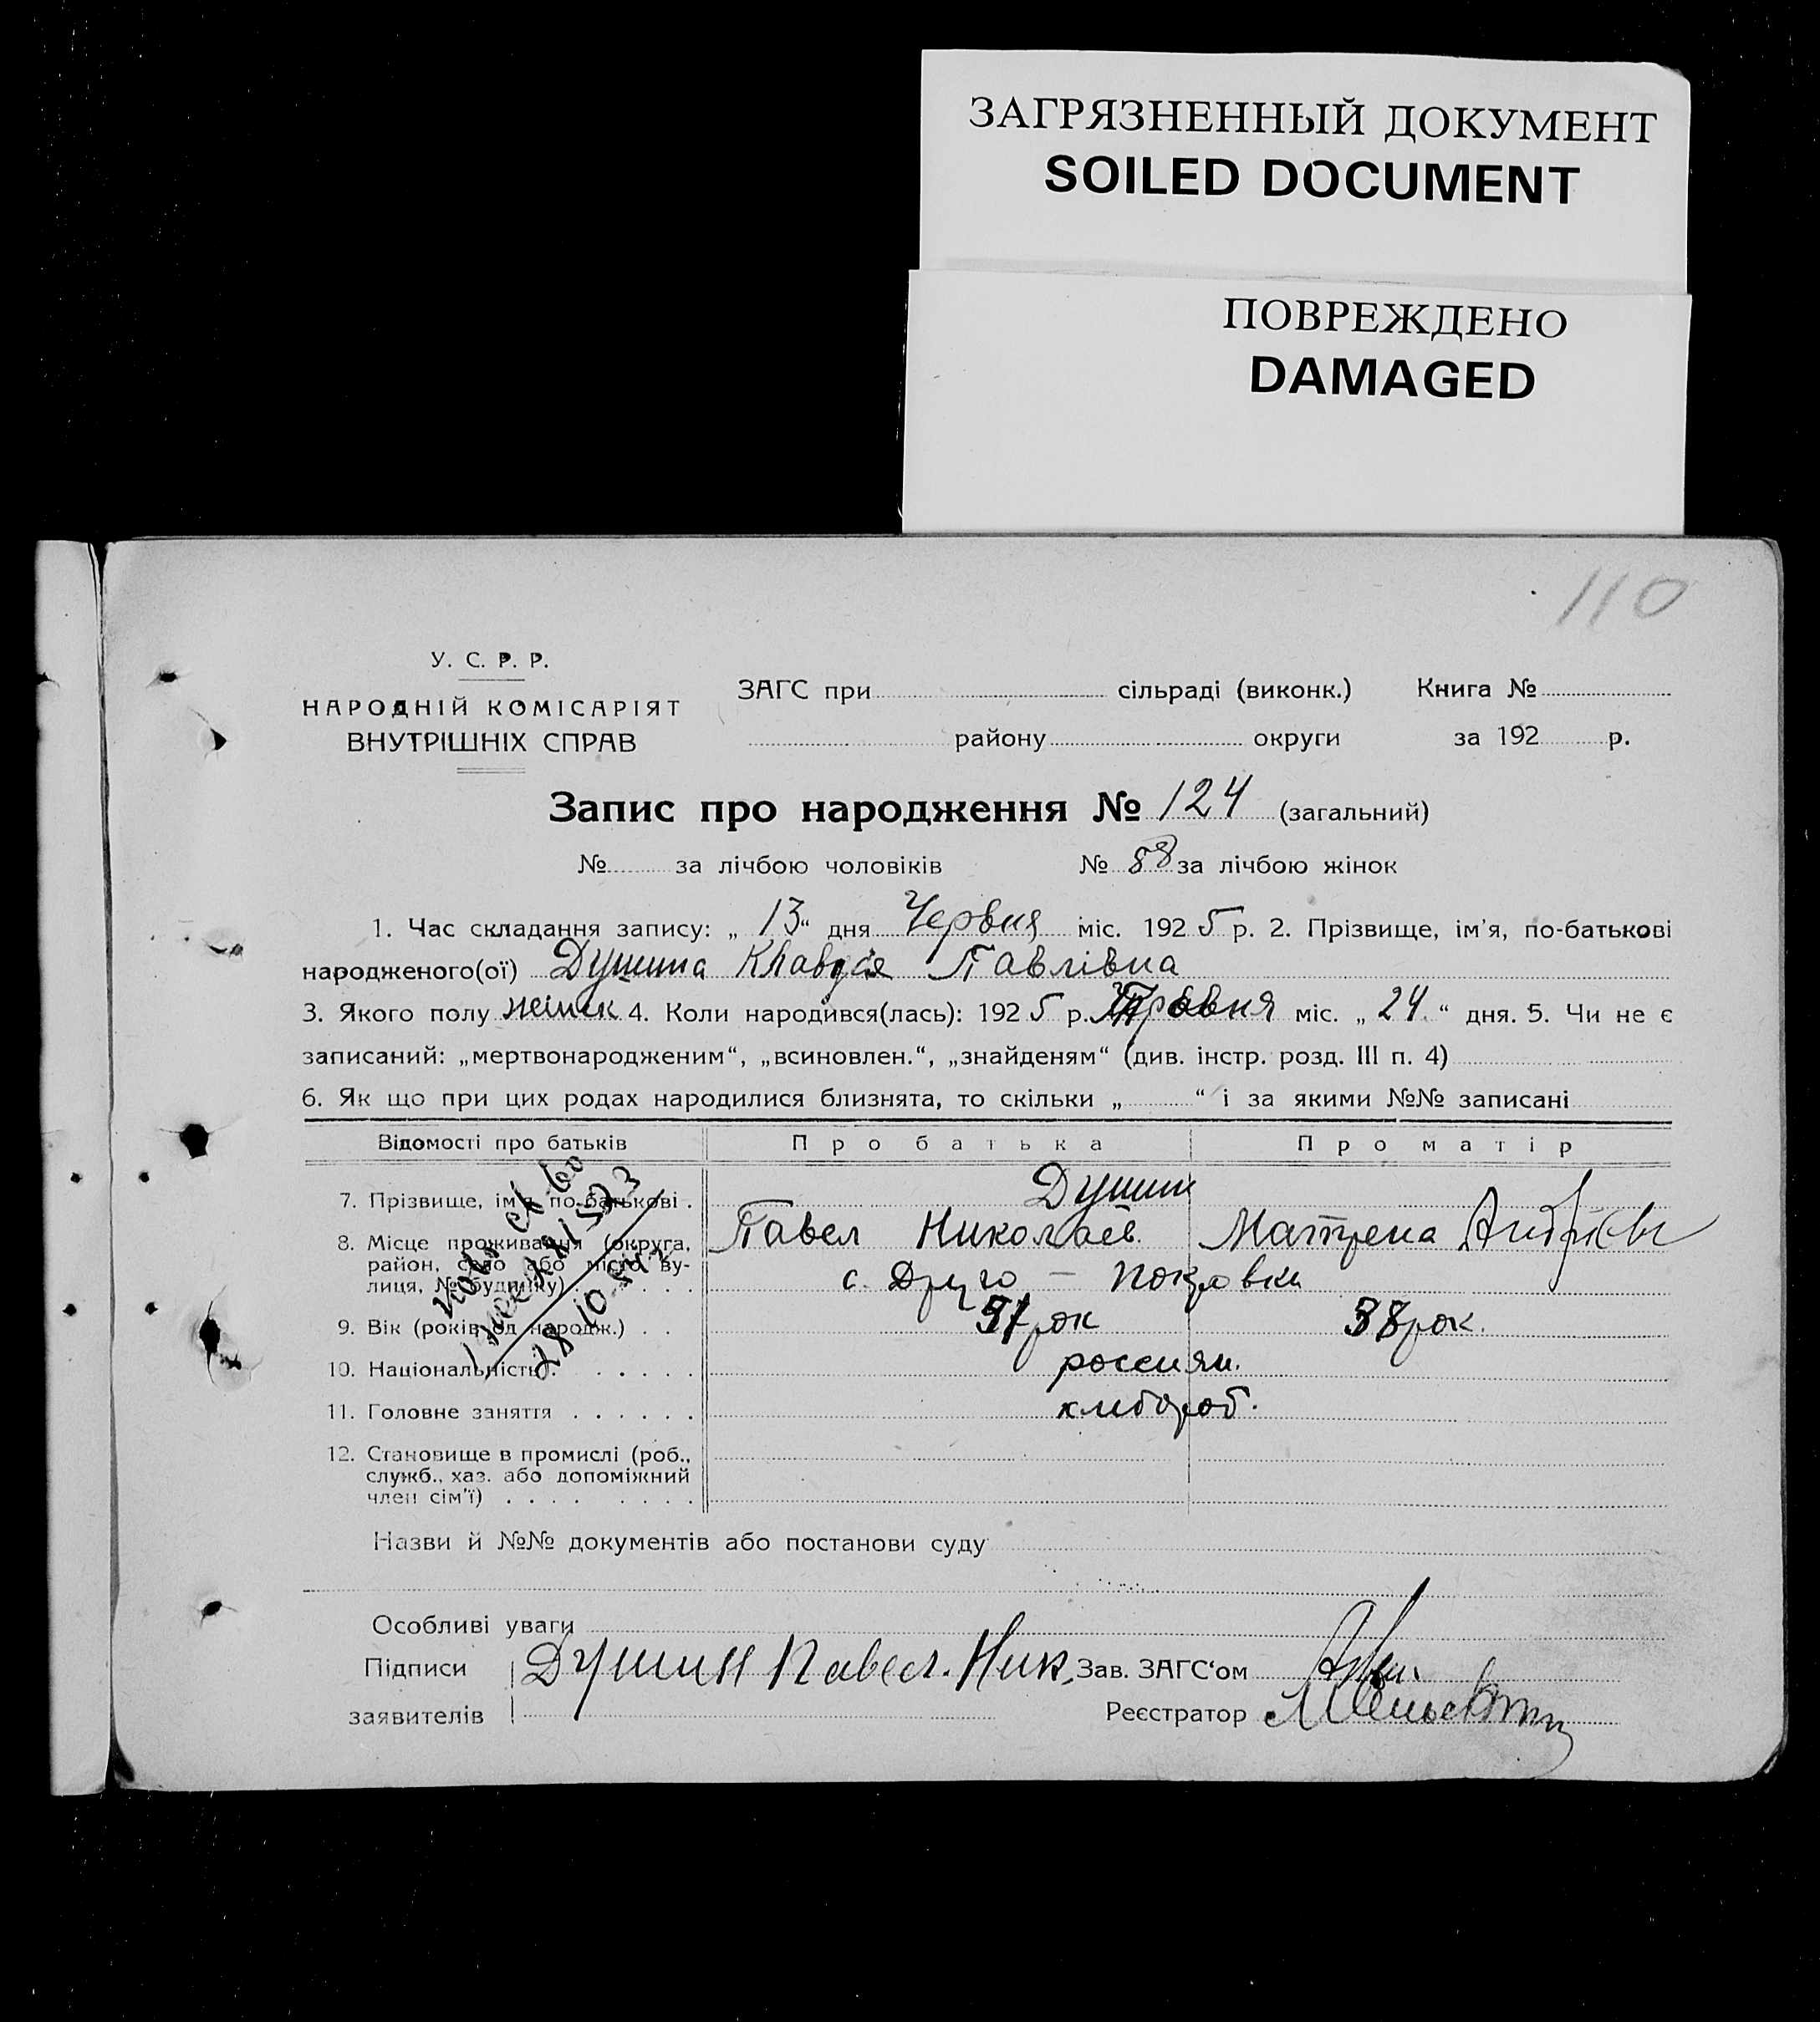 ЗАГРЯЗНЕННЫЙ ДОКУМЕНТ
SOILED DOCUMENT
ПОВРЕЖДЕНО
DAMAGED
110
У. С. Р. Р.
НАРОДНІЙ КОМІСАРІЯТ
ВНУТРІШНІХ СПРАВ
ЗАГС при сільраді (виконк.) Книга №
району округи за 192 р.
Запис про народження № 124 (загальний)
№ за лічбою чоловіків № 88 за лічбою жінок
1. Час складання запису: „ 13 “ дня Червня міс. 1925 р. 2. Прізвище, ім'я, по-батькові
народженого(ої) Душина Клавдія Павлівна
3. Якого полу 4. Коли народився(лась): 1925 р. Травня міс. „ 24 “ дня. 5. Чи не є
записаний: „мертвонародженим“, „всиновлен.“, „знайденям“ (див. інстр. розд. III п. 4)
6. Як що при цих родах народилися близнята, то скільки „ “ і за якими №№ записані
Відомості про батьків Про батька Про матір
7. Прізвище, ім'я, по-батькові . Душин
Павел Николаев. Матрена
8. Місце проживання (округа, район, село або місто, вулиця, № будинку) с. Друго - Покровки
9. Вік (років од народж.) . . рок 38 рок.
10. Національність . . . . . . россиян.
11. Головне заняття . . . . . . хлибороб.
12. Становище в промислі (роб.,
служб., хаз. або допоміжний
член сім'ї) . . . . . . . .
28 10
Назви й №№ документів або постанови суду
Особливі уваги
Підписи Душин Павел. Ник. Зав. ЗАГС'ом
заявителів Реєстратор